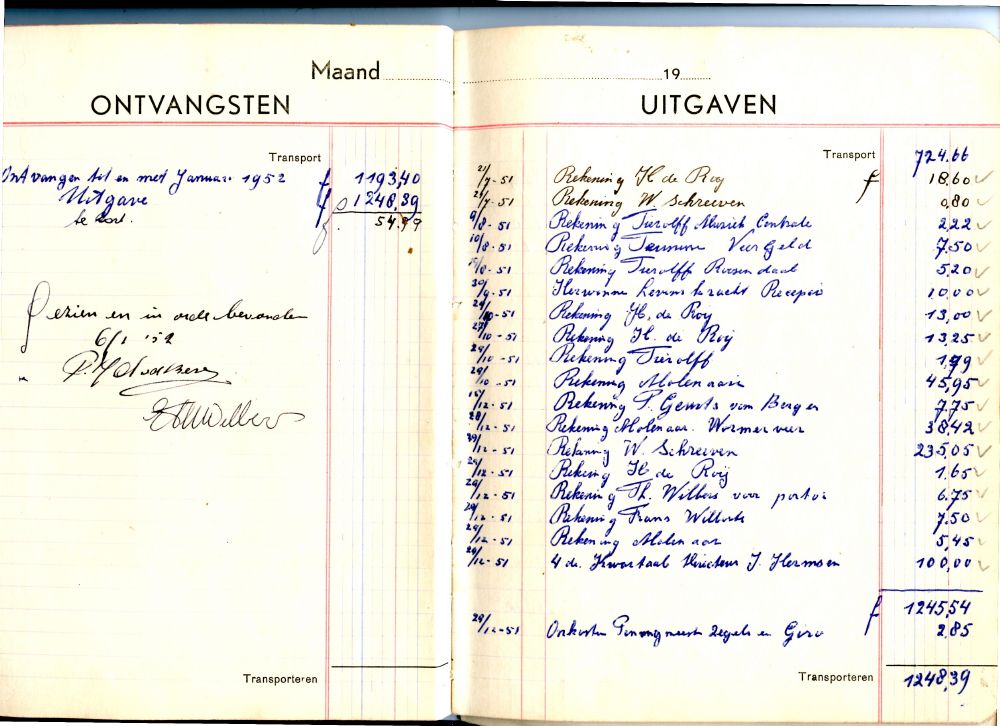 Maand
ONTVANGSTEN
Transport
Ontvangen tot en met Januari 1952 f 1193,40
Uitgave f 1248,39
te kort. f 54.99
Gezien en in orde bevonden
6/1 '52
Maand 19
UITGAVEN
Transport 724.66
21/7-51 Rekening H. de Roy f 18.60
21/7-51 Rekening W. Schreeven 0,80
9/8-51 Rekening Tierolff Muziek Centrale 2,22
10/8-51 Rekening Veergeld 7.50
Rekening Tierolff Roosendaal 5,20
30/9-51 Herwonne Levenskracht Receptie 10,00
Rekening H. de Roy 13,00
27/10-51 Rekening H. de Roij 13,25
29/10-51 Rekening Tierolff 1,99
29/10-51 Rekening Molenaar 45,95
Rekening P. Geurts van Bergen 7.75
28/12-51 Rekening Molenaar. Wormerveer 38,42
29/12-51 Rekening W. Schreeven 235,05
29/12-51 Rekening H de Roij 1.65
29/12-51 Rekening Th. Wilbers voor porto 6.75
29/12-51 Rekening Frans 7.50
29/12-51 Rekening Molenaar 5,45
29/12-51 4de Kwartaal Directeur J. Hermsen 100,00
f 1245,54
29/12-51 Onkosten zegels en Giro 2,85
Transporteren
Transporteren 1248,39